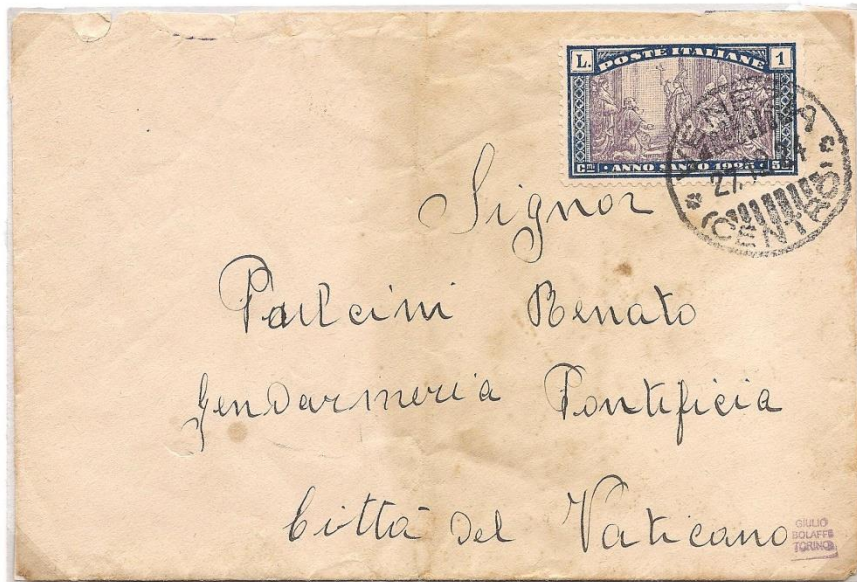 L. POSTE ITALIANE 1
Cmi • ANNO SANTO 1925 • 50
VENEZIA
27.12.24
(CENTRO)
Signor
Renato
Gendarmeria Pontificia
Città del Vaticano
GIULIO
BOLAFFI
TORINO